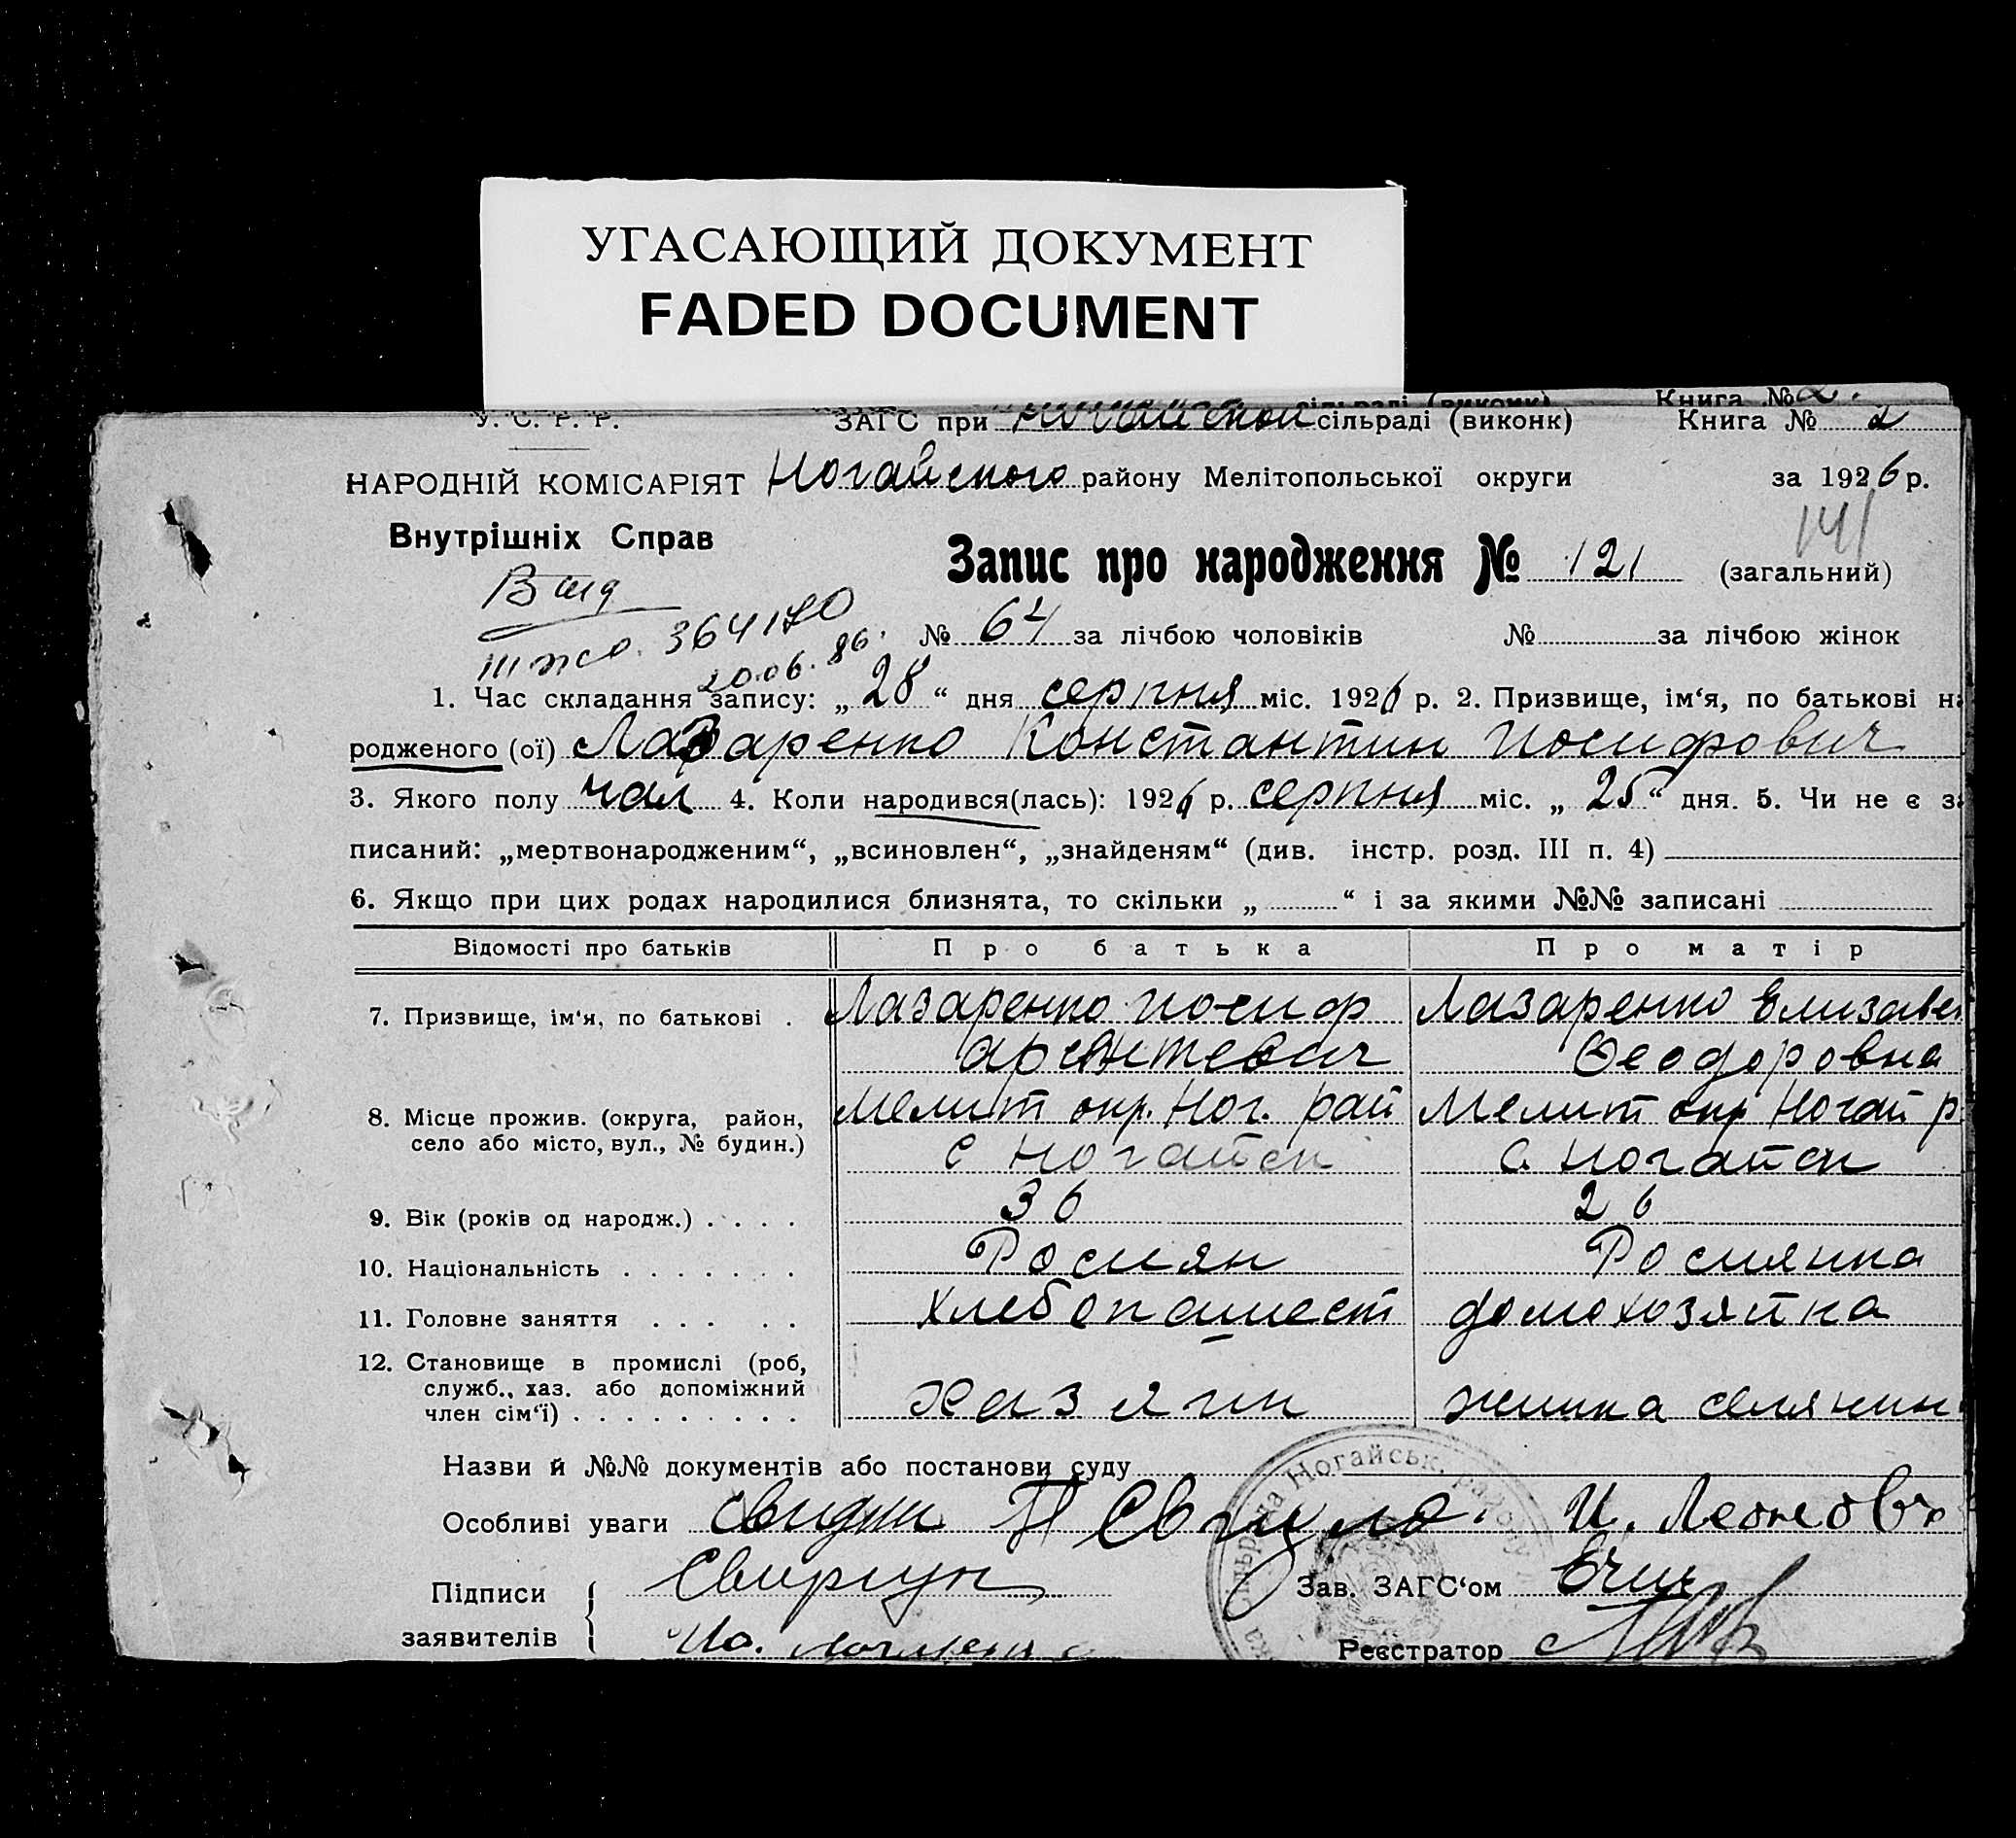 УГАСАЮЩИЙ ДОКУМЕНТ
FADED DOCUMENT
сільраді (виконк) Книга № 2.
У. С. Р. Р. ЗАГС при сільраді (виконк) Книга № 2
НАРОДНІЙ КОМІСАРІЯТ Ногайского району Мелітопольської округи за 1926 р.
Внутрішніх Справ
141
Запис про народження № 121 (загальний)
364170
№ 64 за лічбою чоловіків № за лічбою жінок
20.06.86.
1. Час складання запису: „28“ дня серпня міс. 1926 р. 2. Призвище, ім‘я, по батькові на
родженого (ої) Лазаренко Константин Иосифович
3. Якого полу чол 4. Коли народився(лась): 1926 р. серпня міс. „25“ дня. 5. Чи не є за
писаний: „мертвонародженим“, „всиновлен“, „знайденям“ (див. інстр. розд. III п. 4)
6. Якщо при цих родах народилися близнята, то скільки „ “ і за якими №№ записані
Відомості про батьків Про батька Про матір
7. Призвище, ім‘я, по батькові . Лазаренко Иосиф Лазаренко Елизавет
Теодоровна
8. Місце прожив. (округа, район, Мелит окр. Ног. рай Мелит окр Ногай р
село або місто, вул., № будин.) с Ногайск с Ногайск
9. Вік (років од народж.) . . . . 36 26
10. Національність . . . . . . . Росиян Росиянка
11. Головне заняття . . . . . Хлебопашест домохозяйка
12. Становище в промислі (роб,
служб., хаз. або допоміжний
член сім‘ї) . . . . . . . . . хазяин жинка селянин
Назви й №№ документів або постанови суду
Особливі уваги свидки И. Леонов
Підписи Зав. ЗАГС‘ом
заявителів Реєстратор
Ногайськ. району